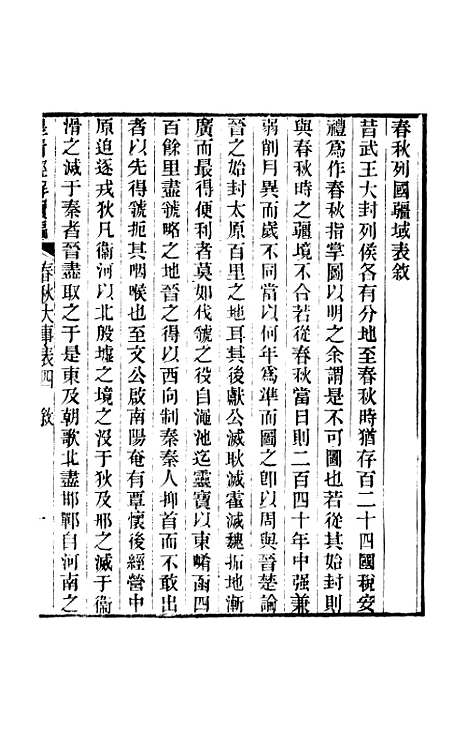 春秋列國疆域表敘
昔武王大封列侯各有分地至春秋時猶存百二十四國稅安
禮爲作春秋指掌圖以明之余謂是不可圖也若從其始封則
與春秋時之疆境不合若從春秋當日則二百四十年中强兼
弱削月異而歲不同當以何年爲準而圖之卽以周與晉楚論
晉之始封太原百里之地耳其後獻公滅耿滅霍滅魏拓地漸
廣而最得便利者莫如伐虢之役自澠池迄靈寶以東崤函四
百餘里盡虢略之地晉之得以西向制秦秦人抑首而不敢出
者以先得虢扼其咽喉也至文公啟南陽奄有覃懷後經營中
原迫逐戎狄凡衞河以北殷墟之境之沒于狄及邢之滅于衞
滑之滅于秦者晉盡取之于是東及朝歌北盡邯鄲自河南之
皇清經解續編
春秋大事表四
敘
一